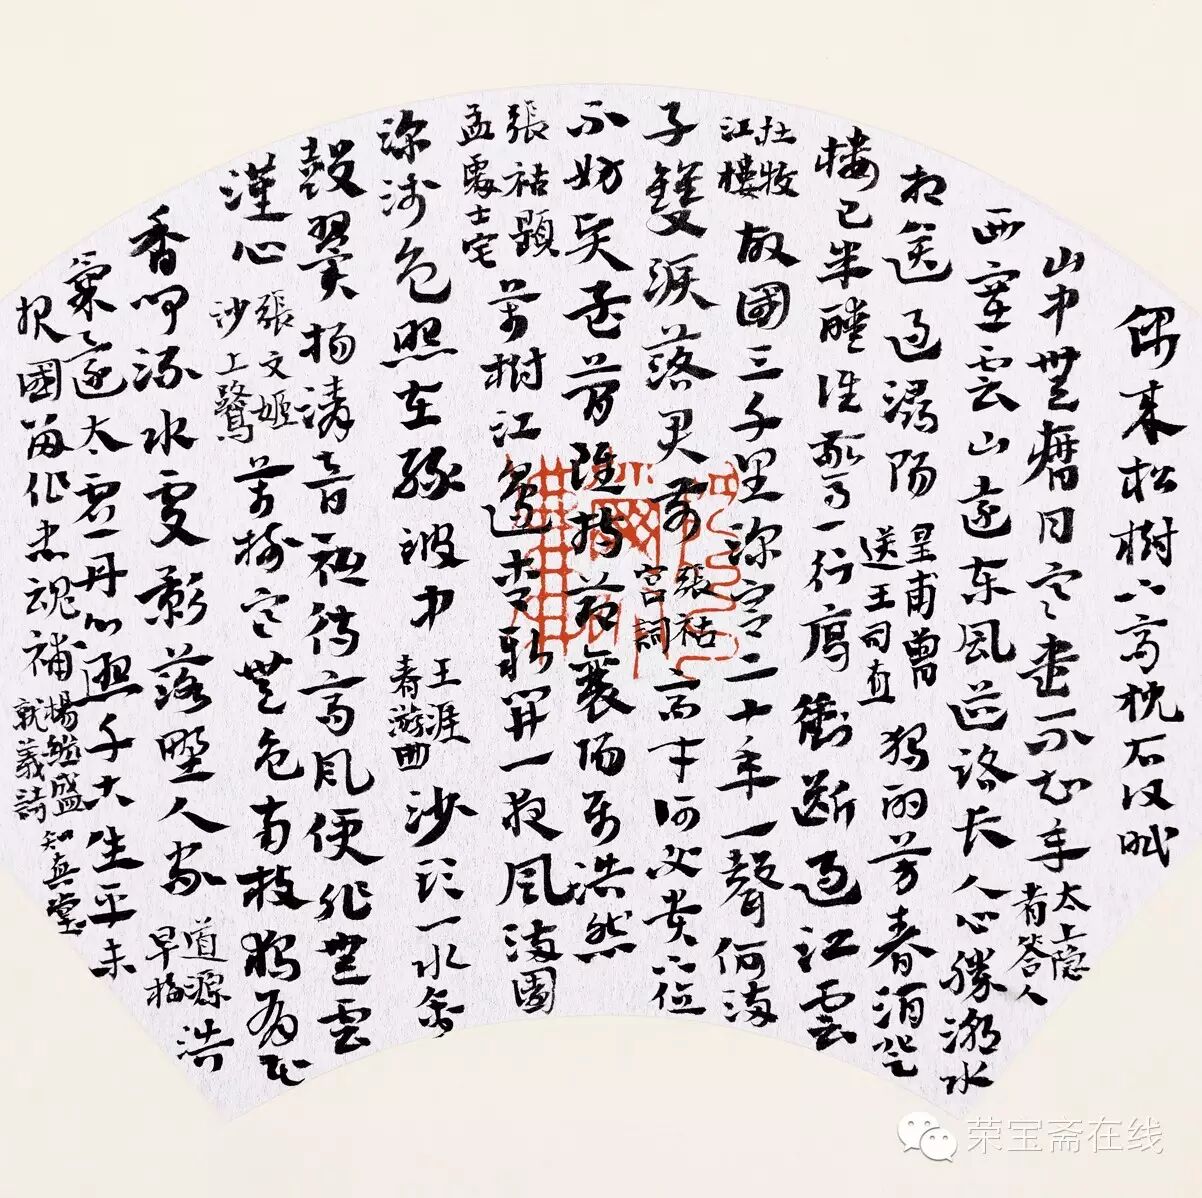 偶来松樹下高枕石頭眠
山中無曆日寒盡不知年
太上隐
者答人
西塞雲山遠东風道路长人心勝潮水
相送過潯陽
皇甫曾
送王司直
獨酌芳春酒登
樓已半醺誰驚一行雁衝斷過江雲
杜牧
江樓
故國三千里深宮二十年一聲何滿
子雙淚落君前
張祜
宮詞
高才何必貴下位
不妨賢孟簡雖持節襄陽屬浩然
張祜題
孟處士宅
萬樹江邊杏新開一夜風滿園
深淺色照在綠波中
王涯
春游曲
沙頭一水禽
鼓翼揚清音祇待高風便非無雲
漢心
張文姬
沙上鷺
萬樹寒無色南枝獨有花
香聞流水處影落野人家
道源
早梅
浩
氣還太虛丹心照千古生平未
報國留作忠魂補
楊繼盛
就義詩
知真堂
荣宝斋在线